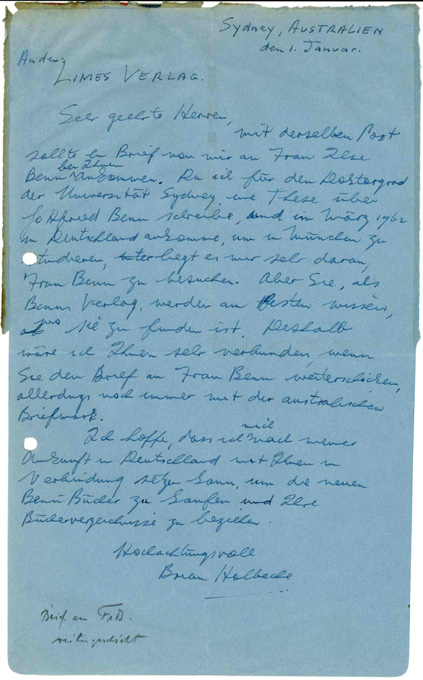 Sydney, AUSTRALIEN
den 1. Januar.
An den
LIMES VERLAG.
Sehr geehrte Herren,
mit derselben Post
sollte ein Brief von mir an Frau Ilse
bei Ihnen
Benn ankommen. Da ich für den Doktorgrad
der Universität Sydney, eine These über
Gottfried Benn schreibe, und im März 1962
in Deutschland ankomme, um in München zu
studieren, liegt es mir sehr daran,
Frau Benn zu besuchen. Aber Sie, als
Benns Verlag, werden am Besten wissen,
wo sie zu finden ist. Deshalb
wäre ich Ihnen sehr verbunden, wenn
Sie den Brief an Frau Benn weiterschicken,
allerdings noch immer mit der australischen
Briefmark.
mich
Ich hoffe, dass ich nach meiner
Ankunft in Deutschland mit Ihnen in
Verbindung setzen kann, um die neuen
Benn Bücher zu kaufen und Ihre
Bücherverzeichnisse zu beziehen.
Hochachtungsvoll
Brian Holbeche
Brief an Fr. B.
weitergeschickt